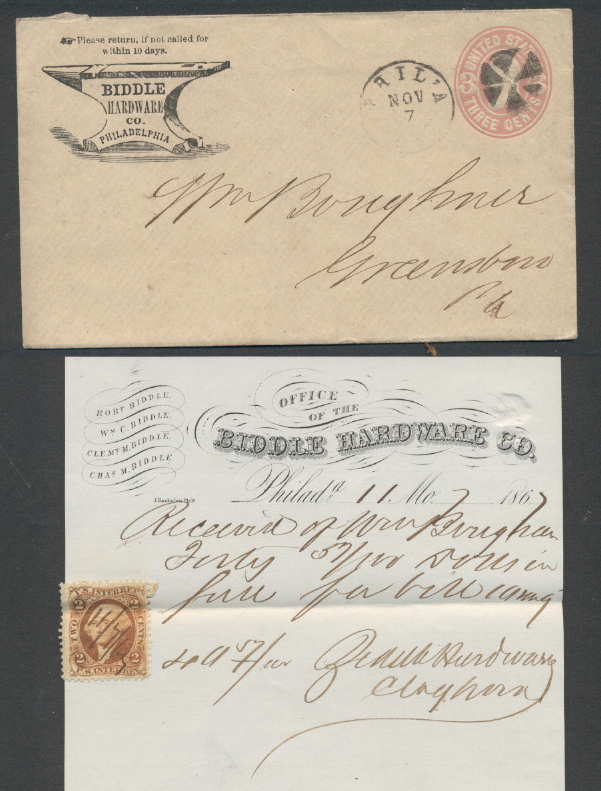 Please return, if not called for
within 10 days.
BIDDLE
HARDWARE
CO.
PHILADELPHIA
PHIL'A
NOV
7
UNITED STATES
3
THREE CENTS
Wm Boughner
Greensboro
Pa
ROBT BIDDLE,
WM C. BIDDLE,
CLEMT M. BIDDLE,
CHAS M. BIDDLE
OFFICE
OF THE
BIDDLE HARDWARE CO.
Philada 11 Mo. 7 1867
Received of Wm Boughner
Forty 57/100 Dolls in
full for bill
U.S. INTER. REV.
2 2
TWO CENTS
2 2
U.S. INTER. REV.
Biddle Hardware
Claghorn